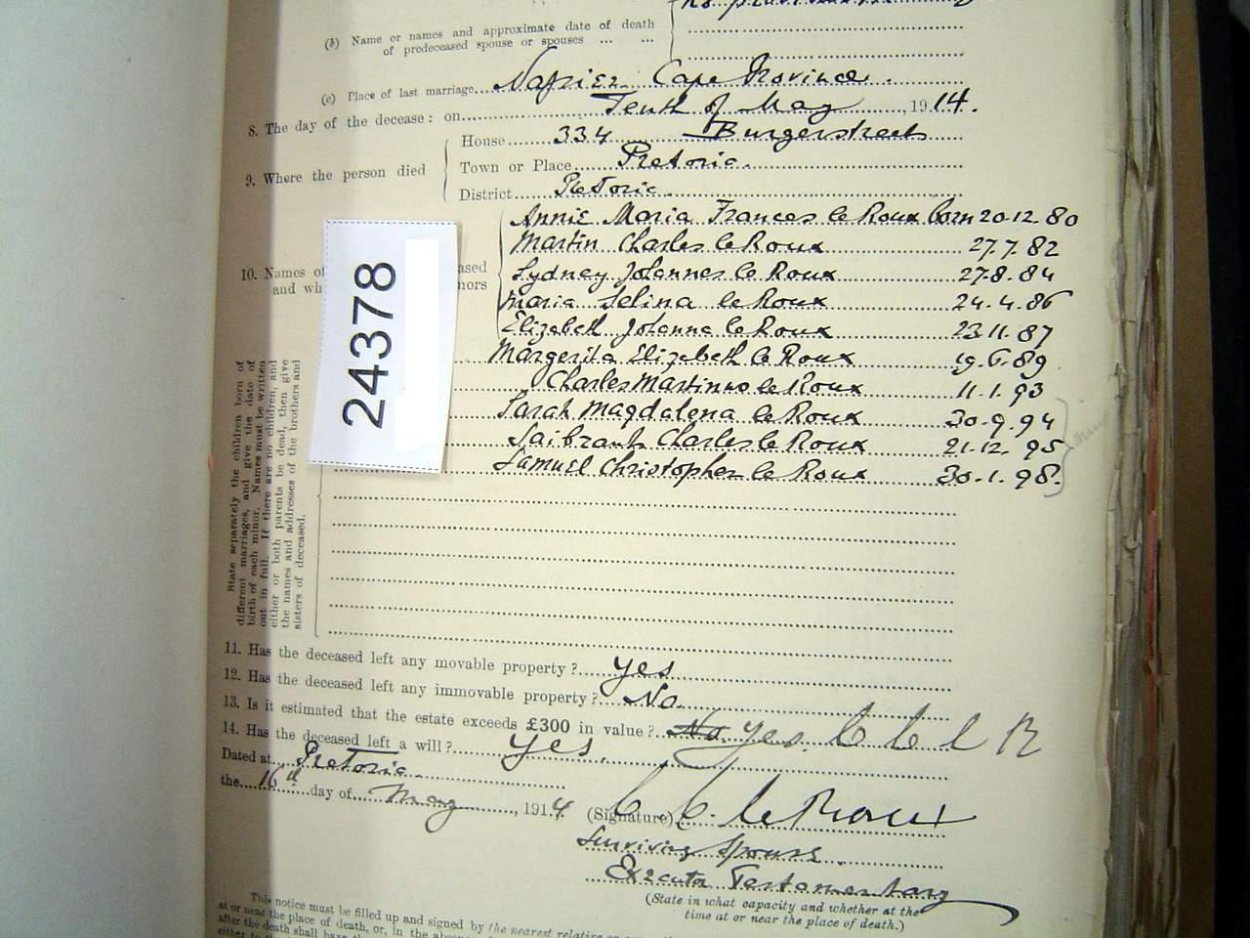 (b) Name or names and approximate date of death
of predeceased spouse or spouses ... ...
(c) Place of last marriage Napier Cape Province.
8. The day of the decease: on Tenth of May, 1914.
House 334 Burgerstreets
9. Where the person died
Town or Place Pretoria.
District Pretoria.
Annie Maria Frances le Roux born 20.12.80
Martin Charles le Roux 27.7.82
Sydney Johannes le Roux 27.8.84
10. Names of
and wh
Maria Selina le Roux 24.4.86
Elizabeth Johanna le Roux 23.11.87
Margerita Elizabeth le Roux 19.6.89
Charles Martinus le Roux 11.1.93
Sarah Magdalena le Roux 30.9.94
Saibrant Charles le Roux 21.12.95
Samuel Christopher le Roux 30.1.98.
24378
State separately the children born of
different marriages, and give the date of
birth of each minor. Names must be written
out in full. If there are no children, and
either or both parents be dead, then give
the names and addresses of the brothers and
sisters of deceased.
11. Has the deceased left any movable property? yes
12. Has the deceased left any immovable property? No.
13. Is it estimated that the estate exceeds £300 in value? No yes. C C l R
14. Has the deceased left a will? yes.
Dated at Pretoria.
the 16th day of May, 1914
(Signature) C. C. le Roux
Surviving Spouse.
Executor Testamentary
(State in what capacity and whether at the
time at or near the place of death.)
This notice must be filled up and signed by the nearest relative
at or near the place of death, or, in the absence
after the death shall have